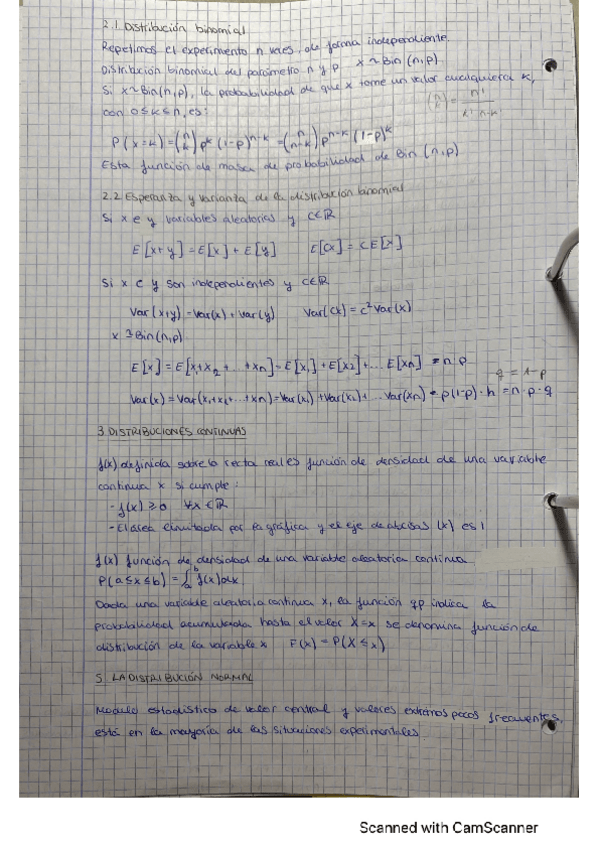 2.1. Distribución binomial
Repetimos el experimento n veces, de forma independiente.
Distribución binomial del parámetro n y p x ~ Bin (n,p)
Si x ~ Bin(n,p), la probabilidad de que x tome un valor cualquiera k,
con 0 ≤ k ≤ n, es:
(n k) = n! / k! n-k!
P(x=k) = (n k) p^k (1-p)^n-k = (n n-k) p^n-k (1-p)^k
Esta función de masa de probabilidad de Bin (n,p)
2.2 Esperanza y varianza de la distribución binomial
Si x e y variables aleatorias y C∈ℝ
E[x+y] = E[x] + E[y] E[Cx] = C E[x]
Si x e y son independientes y C∈ℝ
Var(x+y) = Var(x) + Var(y) Var(Cx) = c² Var(x)
x ~ Bin(n,p)
E[x] = E[x₁+x₂+...+xn] = E[x₁] + E[x₂] + ... E[xn] = n p
q = 1-p
Var(x) = Var(x₁+x₂+...+xn) = Var(x₁) + Var(x₂) + ... Var(xn) = p(1-p)·n = n·p·q
3. DISTRIBUCIONES CONTINUAS
f(x) definida sobre la recta real es función de densidad de una variable
continua x si cumple:
- f(x) ≥ 0 ∀x ∈ ℝ
- El área limitada por la gráfica y el eje de abcisas (x) es 1
f(x) función de densidad de una variable aleatoria continua
P(a ≤ x ≤ b) = ∫ₐᵇ f(x) dx
Dada una variable aleatoria continua x, la función qp indica la
probabilidad acumulada hasta el valor X=x se denomina función de
distribución de la variable x F(x) = P(X ≤ x)
5. LA DISTRIBUCIÓN NORMAL
Modulo estadístico de valor central y valores extremos pocos frecuentes,
está en la mayoría de las situaciones experimentales
Scanned with CamScanner